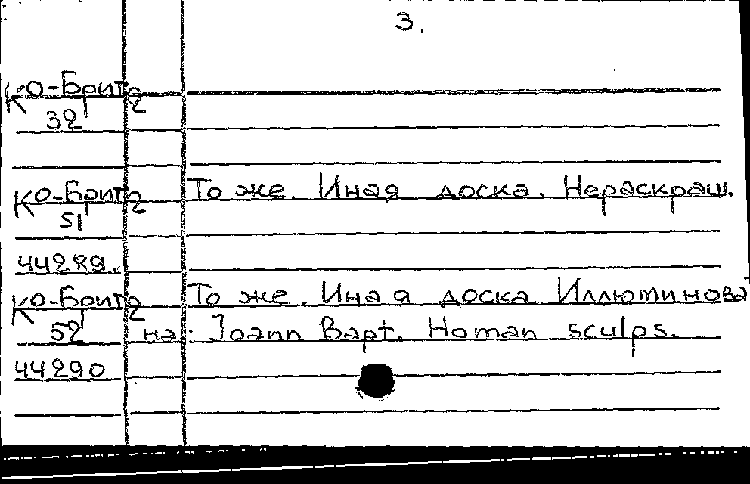 3.
КО-Брит 2
32
КО-Брит 2 То же. Иная доска. Нераскраш.
51
44289.
КО-Брит 2 То же. Иная доска Иллюминова
52 на. Joann Bapt. Homan sculps.
44290